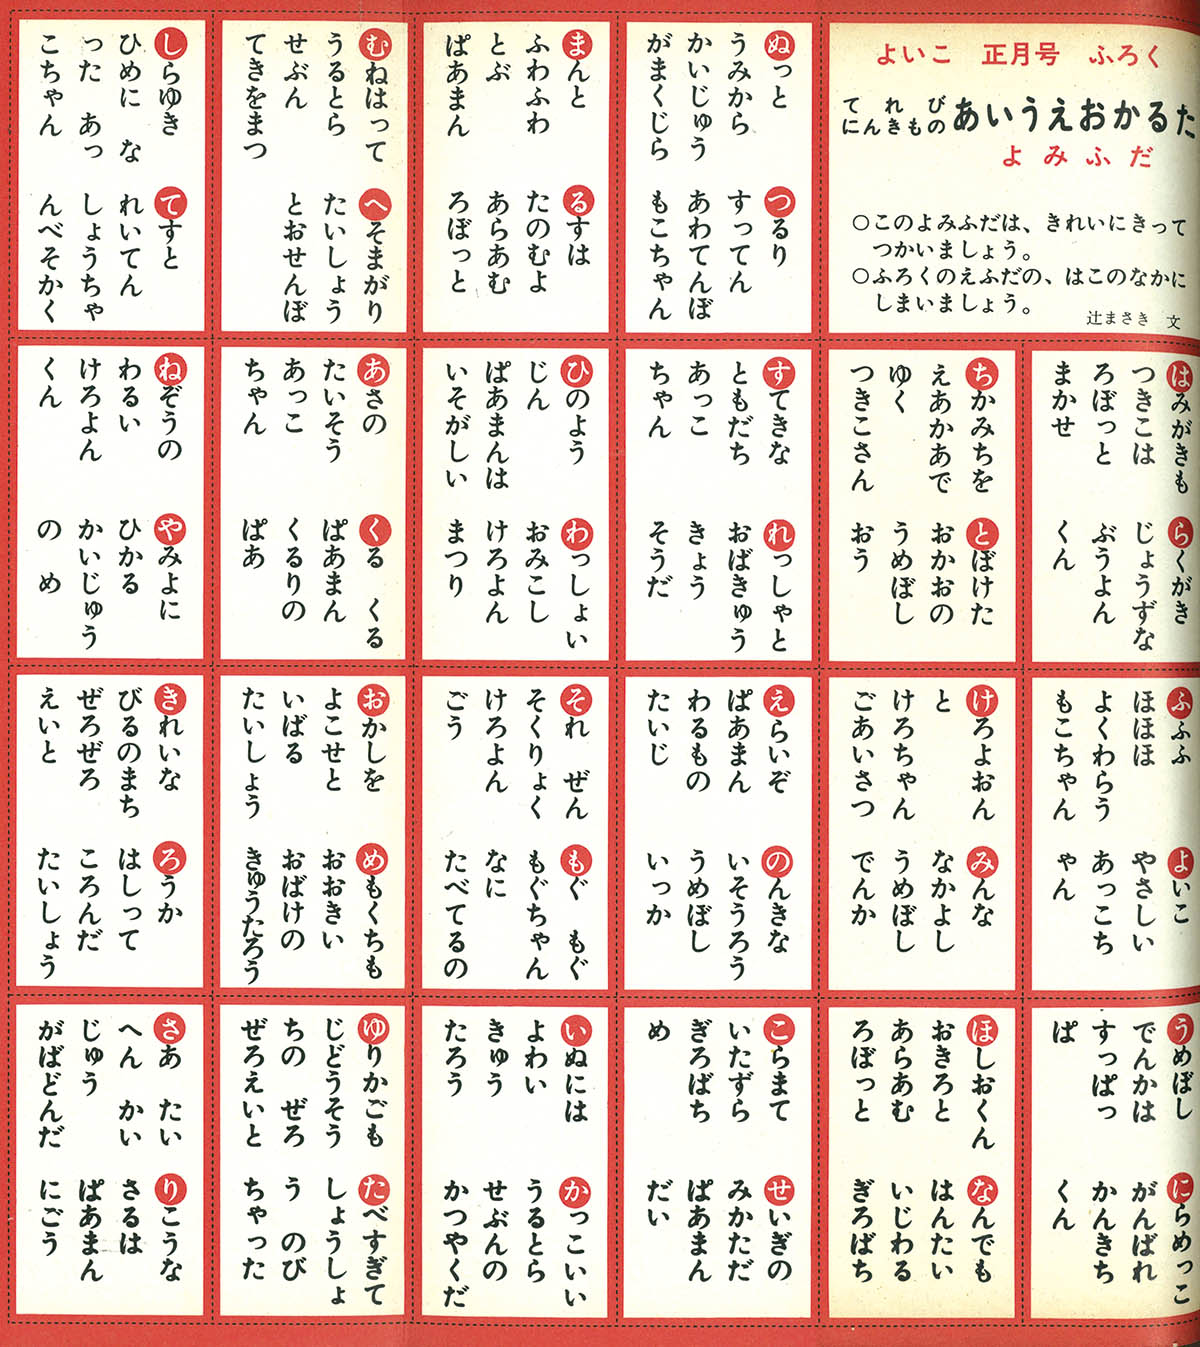 よいこ 正月号 ふろく
てれび
にんきもの
あいうえおかるた
よみふだ
○このよみふだは、きれいにきって
つかいましょう。
○ふろくのえふだの、はこのなかに
しまいましょう。
辻まさき 文
ぬっと
うみから
かいじゅう
がまくじら
つるり
すってん
あわてんぼ
もこちゃん
まんと
ふわふわ
とぶ
ぱあまん
るすは
たのむよ
あらあむ
ろぼっと
むねはって
うるとら
せぶん
てきをまつ
へそまがり
たいしょう
とおせんぼ
しらゆき
ひめに な
った あっ
こちゃん
てすと
れいてん
しょうちゃ
んべそかく
はみがきも
つきこは
ろぼっと
まかせ
らくがき
じょうずな
ぶうよん
くん
ちかみちを
えあかあで
ゆく
つきこさん
とぼけた
おかおの
うめぼし
おう
すてきな
ともだち
あっこ
ちゃん
れっしゃと
おばきゅう
きょう
そうだ
ひのよう
じん
ぱあまんは
いそがしい
わっしょい
おみこし
けろよん
まつり
あさの
たいそう
あっこ
ちゃん
くる くる
ぱあまん
くるりの
ぱあ
ねぞうの
わるい
けろよん
くん
やみよに
ひかる
かいじゅう
の め
ふふふ
ほほほ
よくわらう
もこちゃん
よいこ
やさしい
あっこち
ゃん
けろよおん
と
けろちゃん
ごあいさつ
みんな
なかよし
うめぼし
でんか
えらいぞ
ぱあまん
わるもの
たいじ
のんきな
いそうろう
うめぼし
いっか
それ ぜん
そくりょく
けろよん
ごう
もぐ もぐ
もぐちゃん
なに
たべてるの
おかしを
よこせと
いばる
たいしょう
めもくちも
おおきい
おばけの
きゅうたろう
きれいな
びるのまち
ぜろぜろ
えいと
ろうか
はしって
ころんだ
たいしょう
うめぼし
でんかは
すっぱっ
ぱ
にらめっこ
がんばれ
かんきち
くん
ほしおくん
おきろと
あらあむ
ろぼっと
なんでも
はんたい
いじわる
ぎろばち
こらまて
いたずら
ぎろばち
め
せいぎの
みかただ
ぱあまん
だい
いぬには
よわい
きゅう
たろう
かっこいい
うるとら
せぶんの
かつやくだ
ゆりかごも
じどうそう
ちの ぜろ
ぜろえいと
たべすぎて
しょうしょ
う のび
ちゃった
さあ たい
へん かい
じゅう
がばどんだ
りこうな
さるは
ぱあまん
にごう